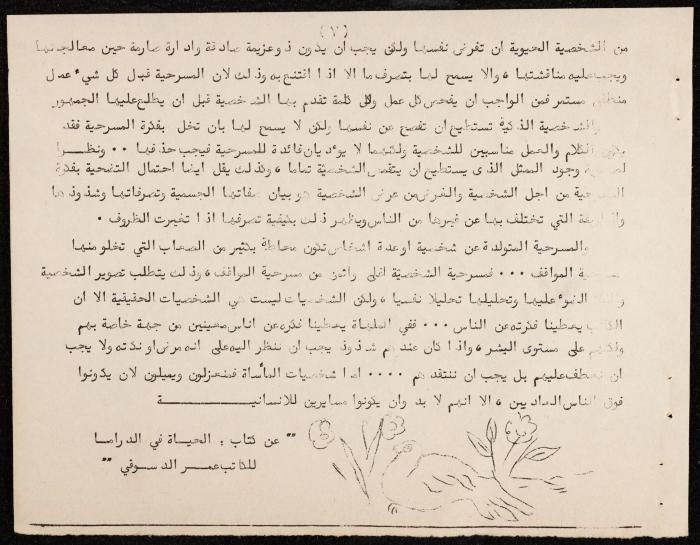 (٧)
من الشخصية الحيوية ان تفرض نفسها ولكن يجب ان يكون ذو عزيمة صادقة وادارة صارمة حين معالجتها
ويجب عليه مناقشتها ، والا يسمح لها بتصرف ما الا اذا اقتنع به وذلك لان المسرحية قبل كل شيء عمل
منطقي مستمر فمن الواجب ان يفحص كل عمل وكل كلمة تقدم بها الشخصية قبل ان يطلع عليها الجمهور
والشخصية الذكية تستطيع ان تفصح عن نفسها ولكن لا يسمح لها بأن تخل بفكرة المسرحية فقد
يكون الكلام والعمل مناسبين للشخصية ولكنهما لا يؤديان فائدة للمسرحية فيجب حذفها ٠٠ ونظرا
وجود الممثل الذى يستطيع ان يتقمص الشخصية تماما ، وكذلك يقل ايضا احتمال التضحية بفكرة
المسرحية من اجل الشخصية والغرض من عرض الشخصية هو بيان صفاتها الجسمية وتصرفاتها وشذوذها
التي تختلف بها عن غيرها من الناس ويظهر ذلك بكيفية تصرفها اذا تغيرت الظروف ٠
والمسرحية المتولدة عن شخصية او عدة اشخاص تكون محاطة بكثير من الصعاب التي تخلو منها
مسرحية المواقف ٠٠٠ فمسرحية الشخصية اغلى واثمن من مسرحية المواقف ، وذلك يتطلب تصوير الشخصية
والقاء الضوء عليها وتحليلها تحليلا نفسيا ، ولكن الشخصيات ليست هي الشخصيات الحقيقية الا ان
الكاتب يعطينا فكرته عن الناس ٠٠٠ ففي الملهاة يعطينا فكره عن اناس معينين من جهة خاصة بهم
ولكنهم على مستوى البشر ، واذا كان عندهم شذوذ يجب ان ننظر اليه على انه مرض او نكته ولا يجب
ان نعطف عليهم بل يجب ان ننتقدهم ٠٠٠٠ اما شخصيات المأساة فمنعزلون ويميلون لان يكونوا
فوق الناس العاديين ، الا انهم لا بد وان يكونوا مسايرين للانسانية
" عن كتاب : الحياة في الدراما
للكاتب عمر الدسوقي "